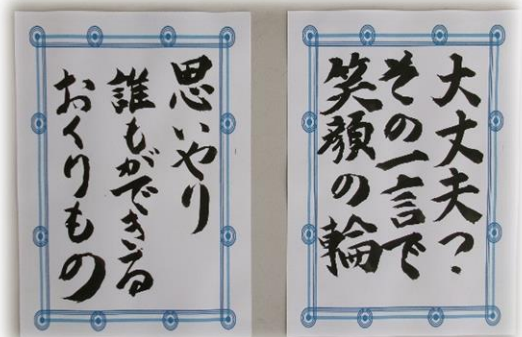 大丈夫？
その一言で
笑顔の輪
思いやり
誰もができる
おくりもの